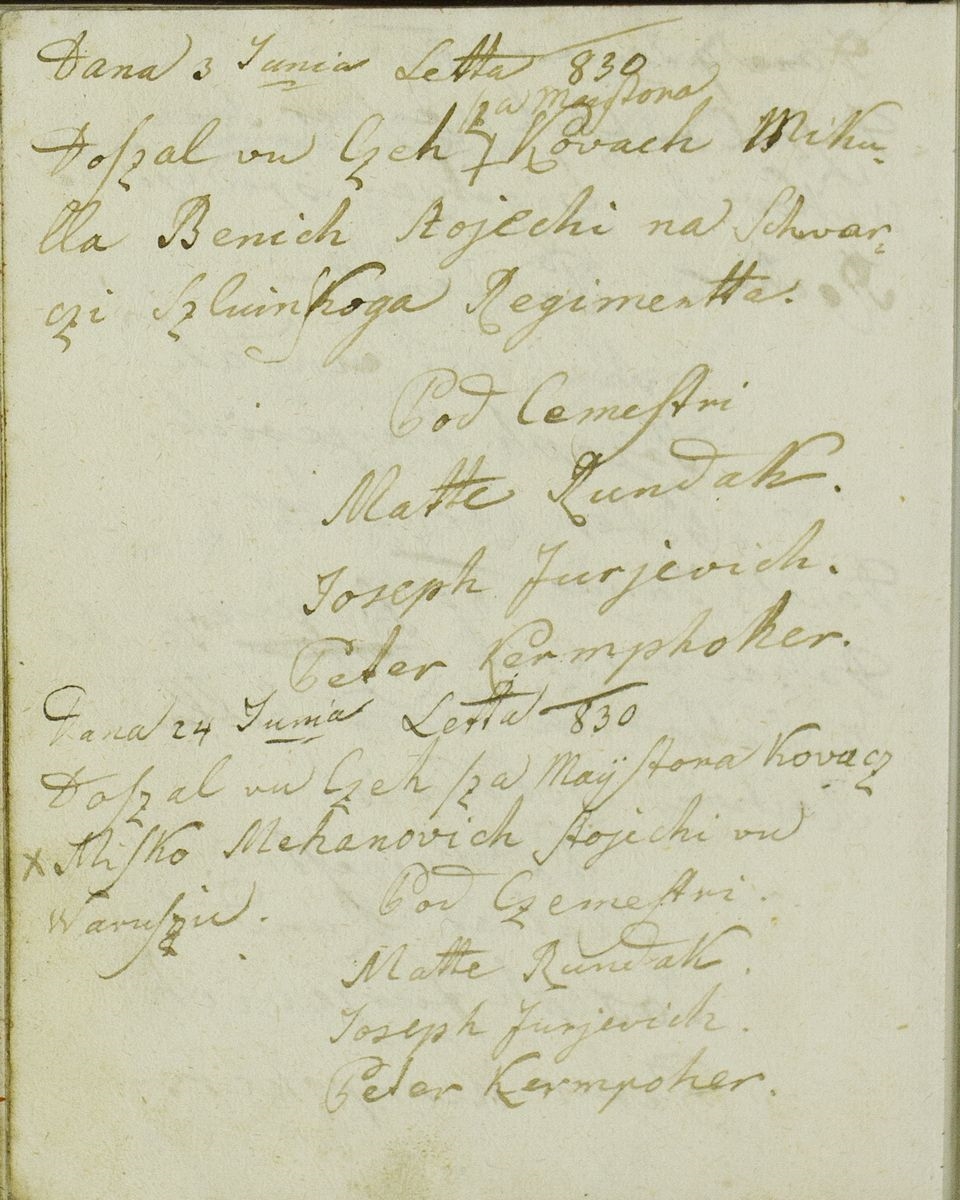 Dana 3 Junia Letta 830
sza Maystora
Doszal vu Czeh Kovach Miku-
lla Benich stojechi na Schwar-
czi Szluinskoga Regimentta.
Pod Cemestri
Matte Rundak.
Joseph Jurjevich.
Peter Kermphoker.
Dana 24 Junia Letta 830
Doszal vu Czeh sza Maÿstora Kovacz
x Misko Mehanovich stojechi vu
Waruszu. Pod Czemestri.
Matte Rundak.
Joseph Jurjevich.
Peter Kermpoher.